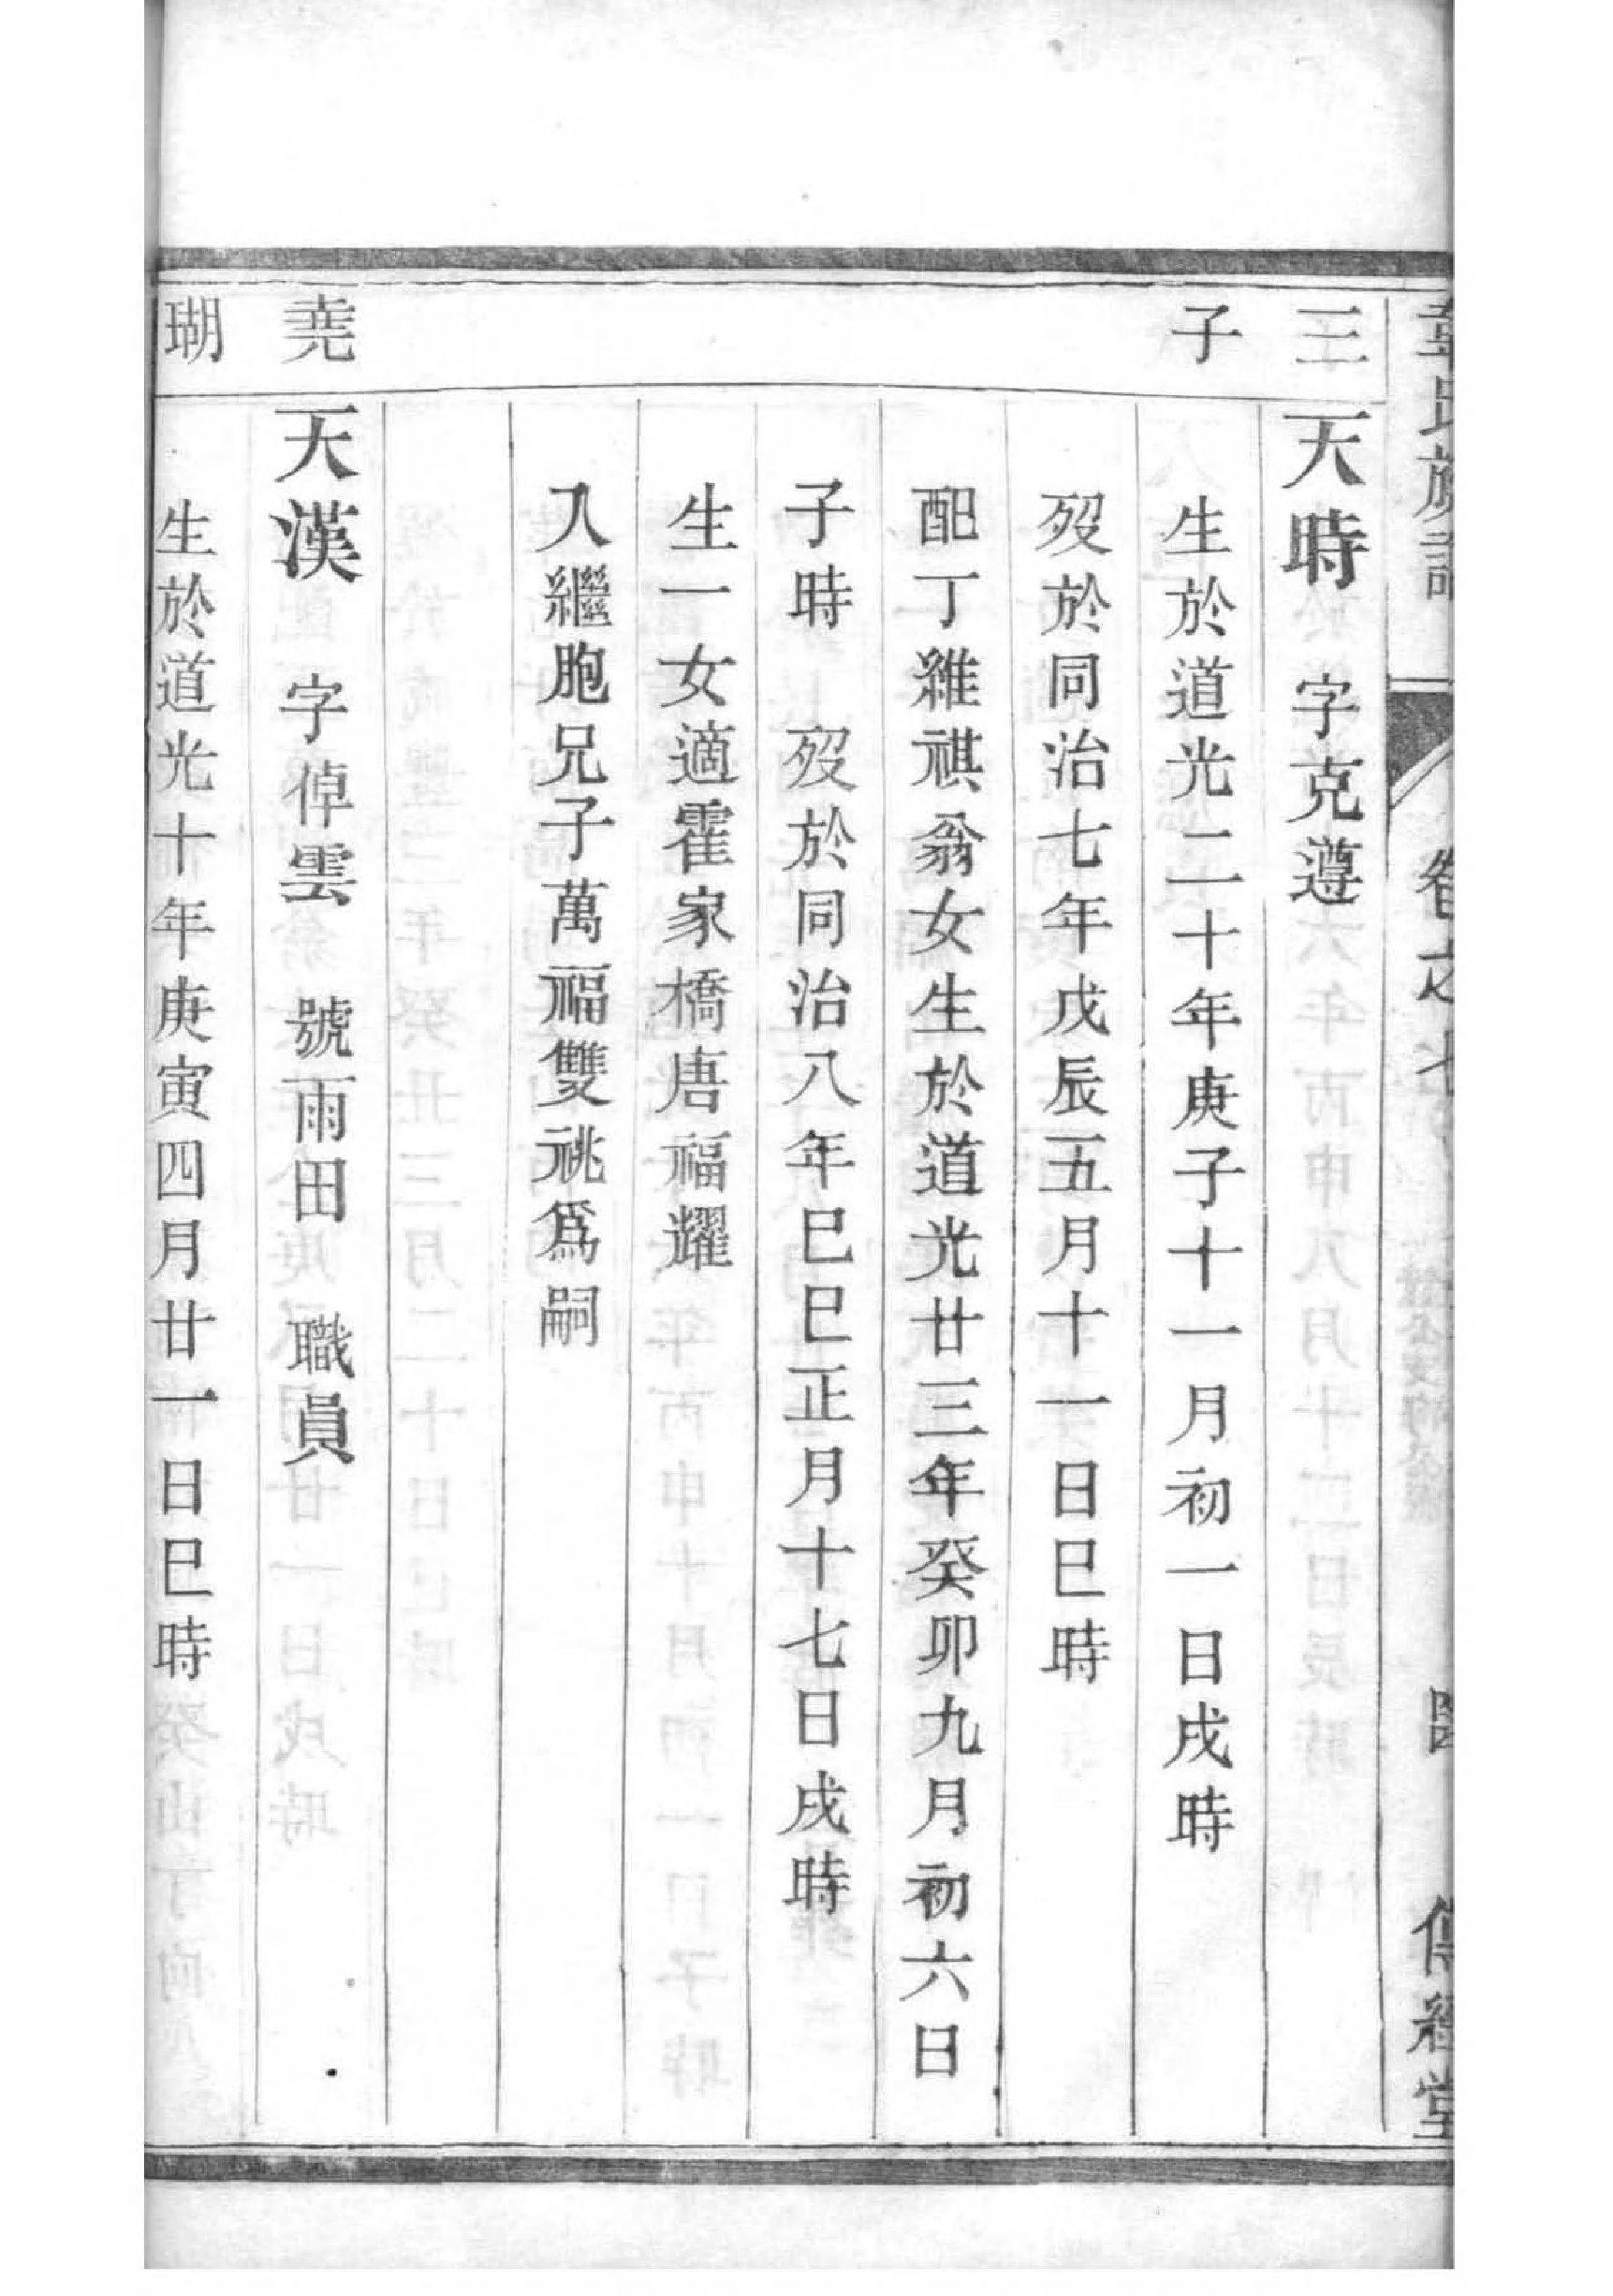 族譜
卷之七
傳經堂
三
子
天時 字克遵
生於道光二十年庚子十一月初一日戌時
歿於同治七年戊辰五月十一日巳時
配丁維祺翁女生於道光廿三年癸卯九月初六日
子時 歿於同治八年巳巳正月十七日戌時
生一女適霍家橋唐福耀
入繼胞兄子萬福雙祧爲嗣
堯
天漢 字倬雲 號雨田 職員
瑚
生於道光十年庚寅四月廿一日巳時